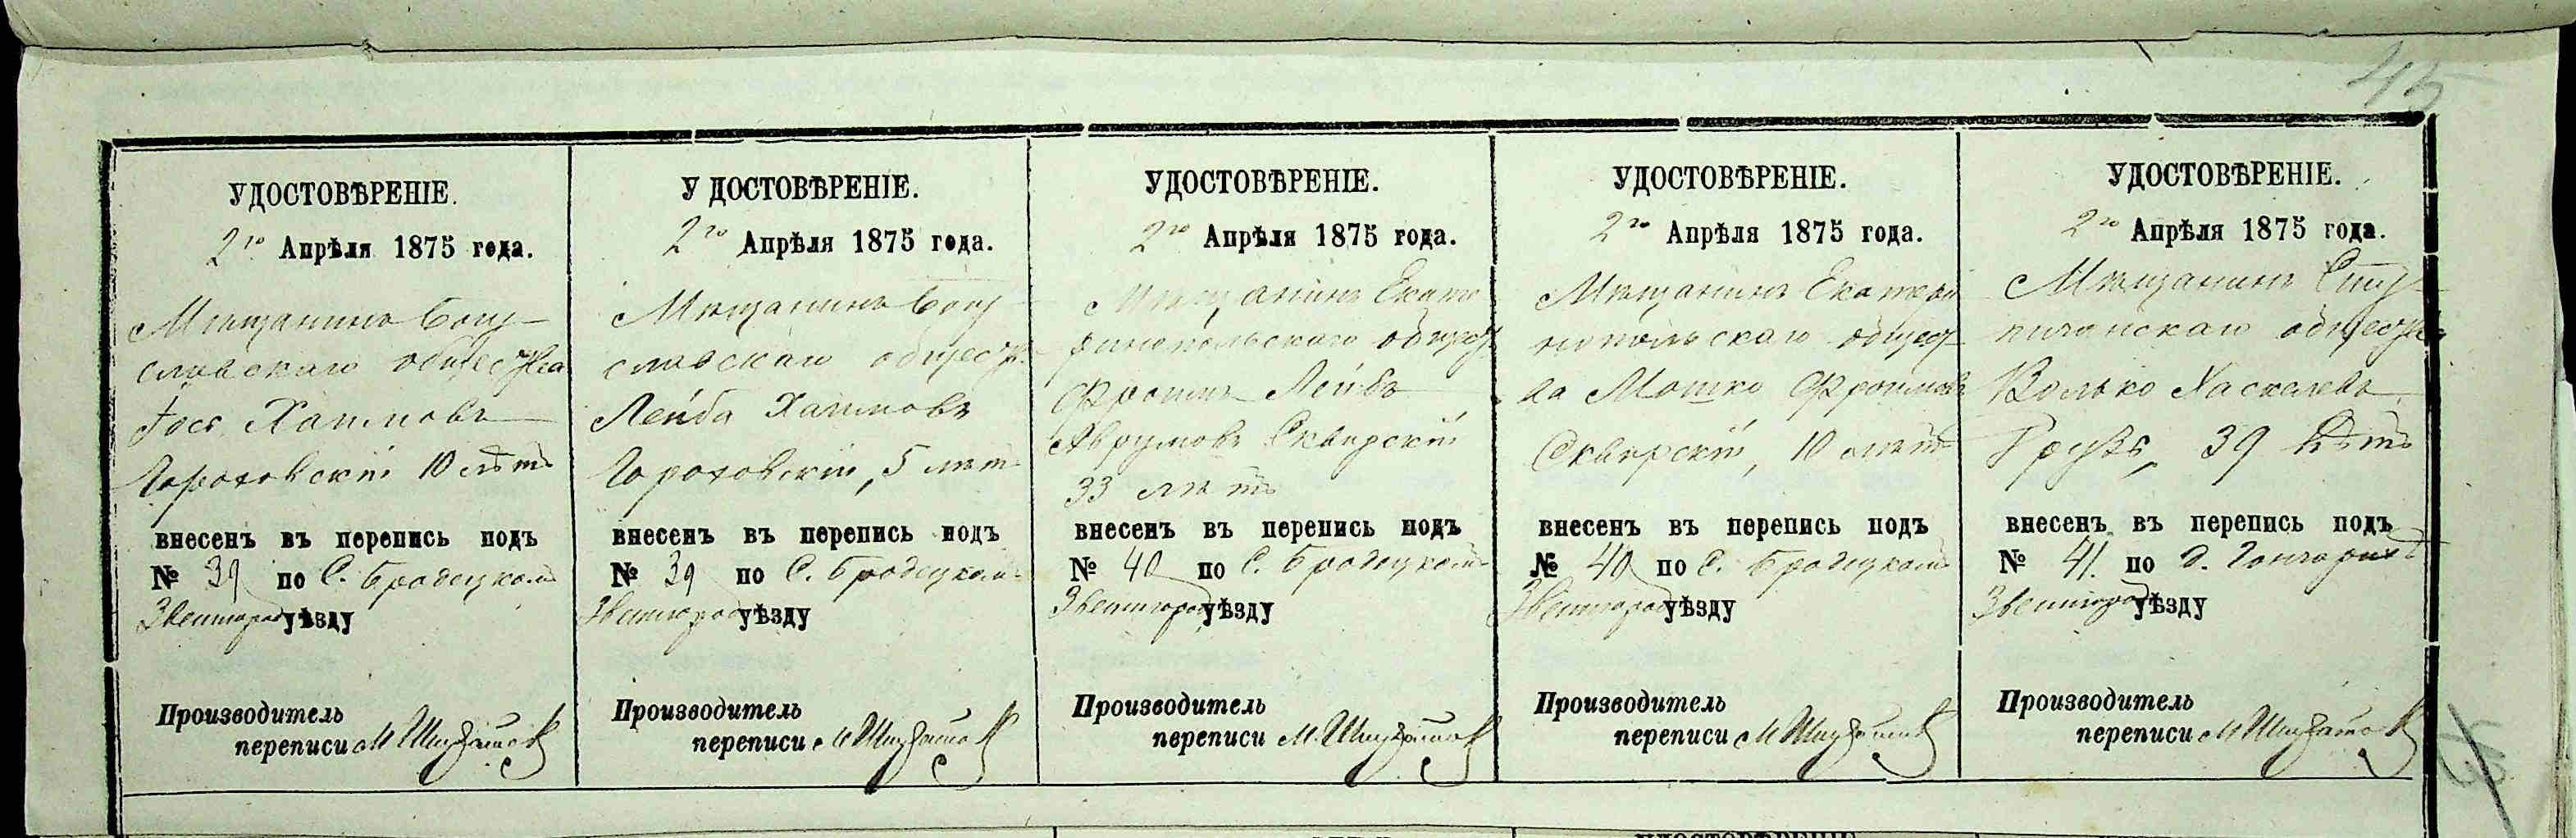 45
УДОСТОВѢРЕНІЕ.
2го Апрѣля 1875 года.
Мѣщанинъ Богу-
славскаго общества
Іось Хаимовъ
Гороховскій 10 лѣтъ
внесенъ въ перепись подъ
№ 39 по С. Бродецкому
Звенигород уѣзду
Производитель
переписи М
У ДОСТОВѢРЕНІЕ.
2го Апрѣля 1875 года.
Мѣщанинъ Богу
славскаго общест
Лейба Хаимовъ
Гороховскій, 5 лѣтъ
внесенъ въ перепись подъ
№ 39 по С. Бродецкому
Звенигород уѣзду
Производитель
переписи М
УДОСТОВѢРЕНІЕ.
2го Апрѣля 1875 года.
Мѣщанинъ Екате
ринопольскаго общест
Фроимъ Лейбъ
Аврумовъ Сквирскій
33 лѣтъ
внесенъ въ перепись подъ
№ 40 по С. Бродецкому
Звенигород уѣзду
Производитель
переписи М.
УДОСТОВѢРЕНІЕ.
2го Апрѣля 1875 года.
Мѣщанинъ Екатери
нопольскаго общест
ва Мошко Фроимовъ
Сквирскій, 10 лѣтъ
внесенъ въ перепись подъ
№ 40 по С. Бродецкому
Звенигород уѣзду
Производитель
переписи М
УДОСТОВѢРЕНІЕ.
2го Апрѣля 1875 года.
Мѣщанинъ
общества
Волько Хаскелевъ
39 лѣтъ
внесенъ въ перепись подъ
№ 41. по д.
Звенигород уѣзду
Производитель
переписи М